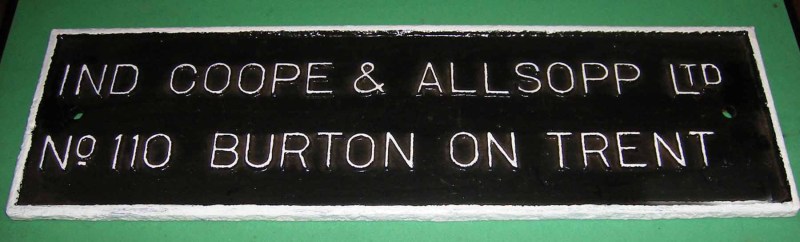 IND COOPE & ALLSOPP LTD
No 110 BURTON ON TRENT